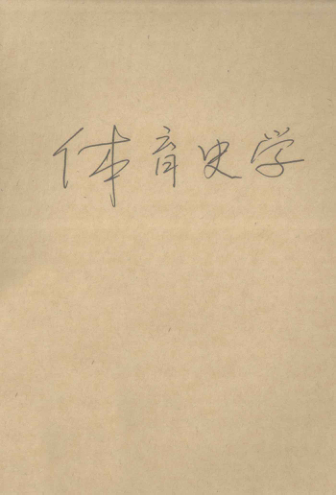 体育史学